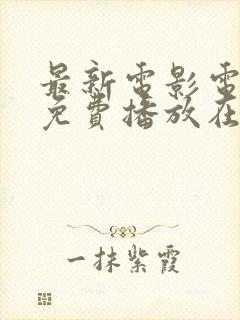 最新電影電
免費播放在
一抹紫霞